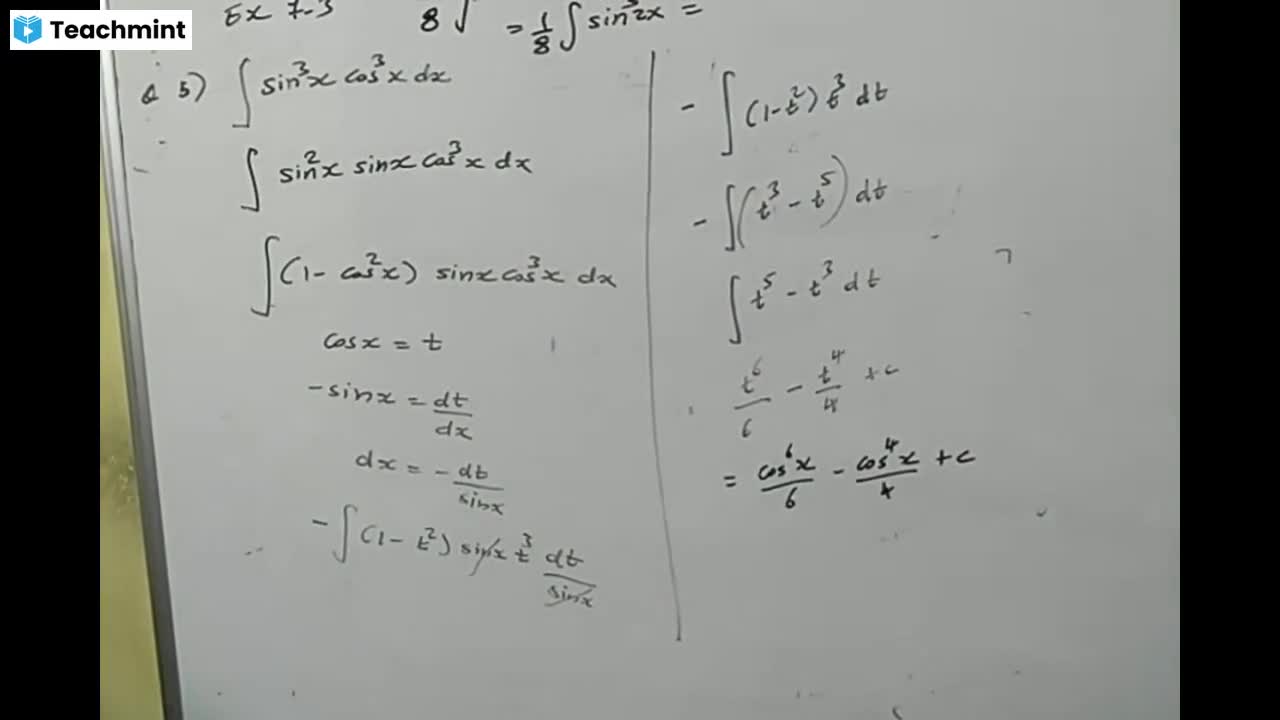 Teachmint
Ex 7.3
8 ∫ = 1/8 ∫ sin³2x =
Q 5) ∫ sin³x cos³x dx
∫ sin²x sinx cos³x dx
∫ (1 - cos²x) sinx cos³x dx
cosx = t
-sinx = dt/dx
dx = - dt/sinx
- ∫ (1 - t²) sinx t³ dt/sinx
- ∫ (1-t²) t³ dt
- ∫ (t³ - t⁵) dt
∫ t⁵ - t³ dt
t⁶/6 - t⁴/4 + c
= cos⁶x/6 - cos⁴x/4 + c